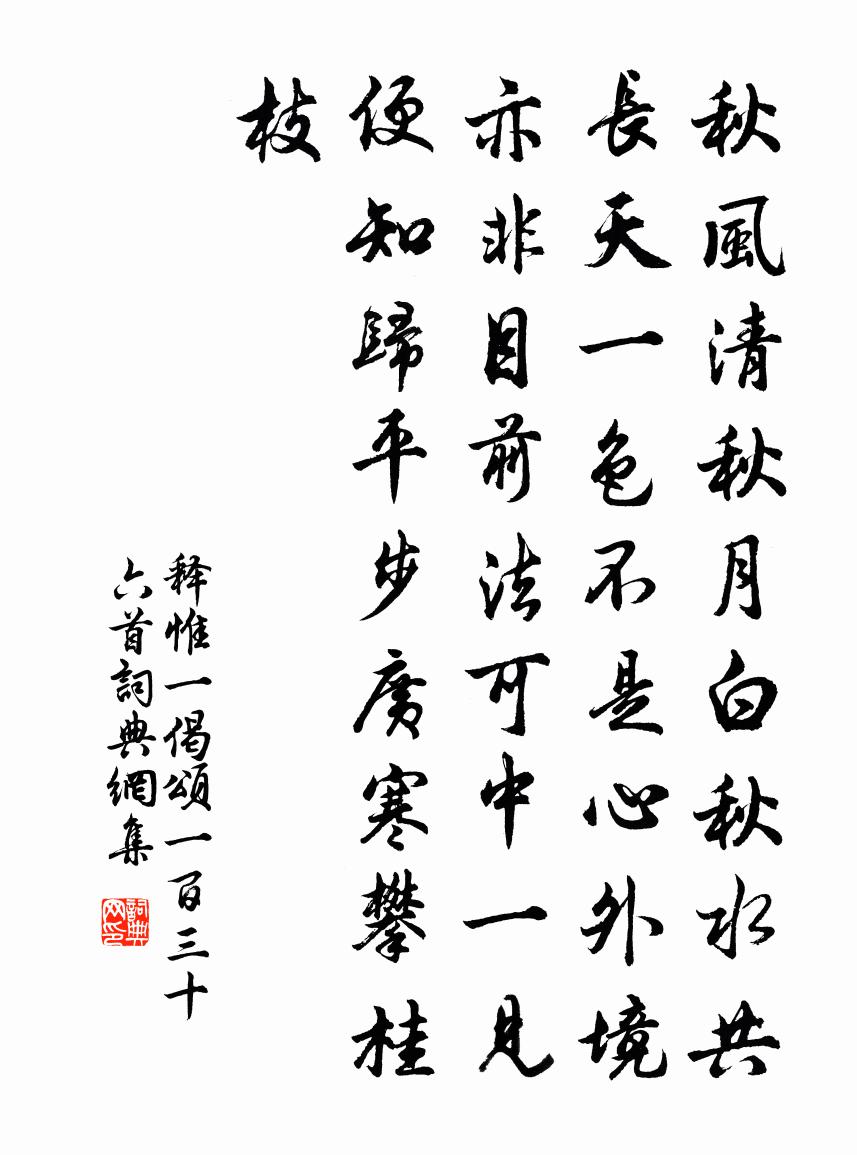 秋風清秋月白秋水共
長天一色不是心外境
亦非目前法可中一見
便知歸平步廣寒攀桂
枝
释惟一偈頌一百三十
六首詞典網集
詞典網印